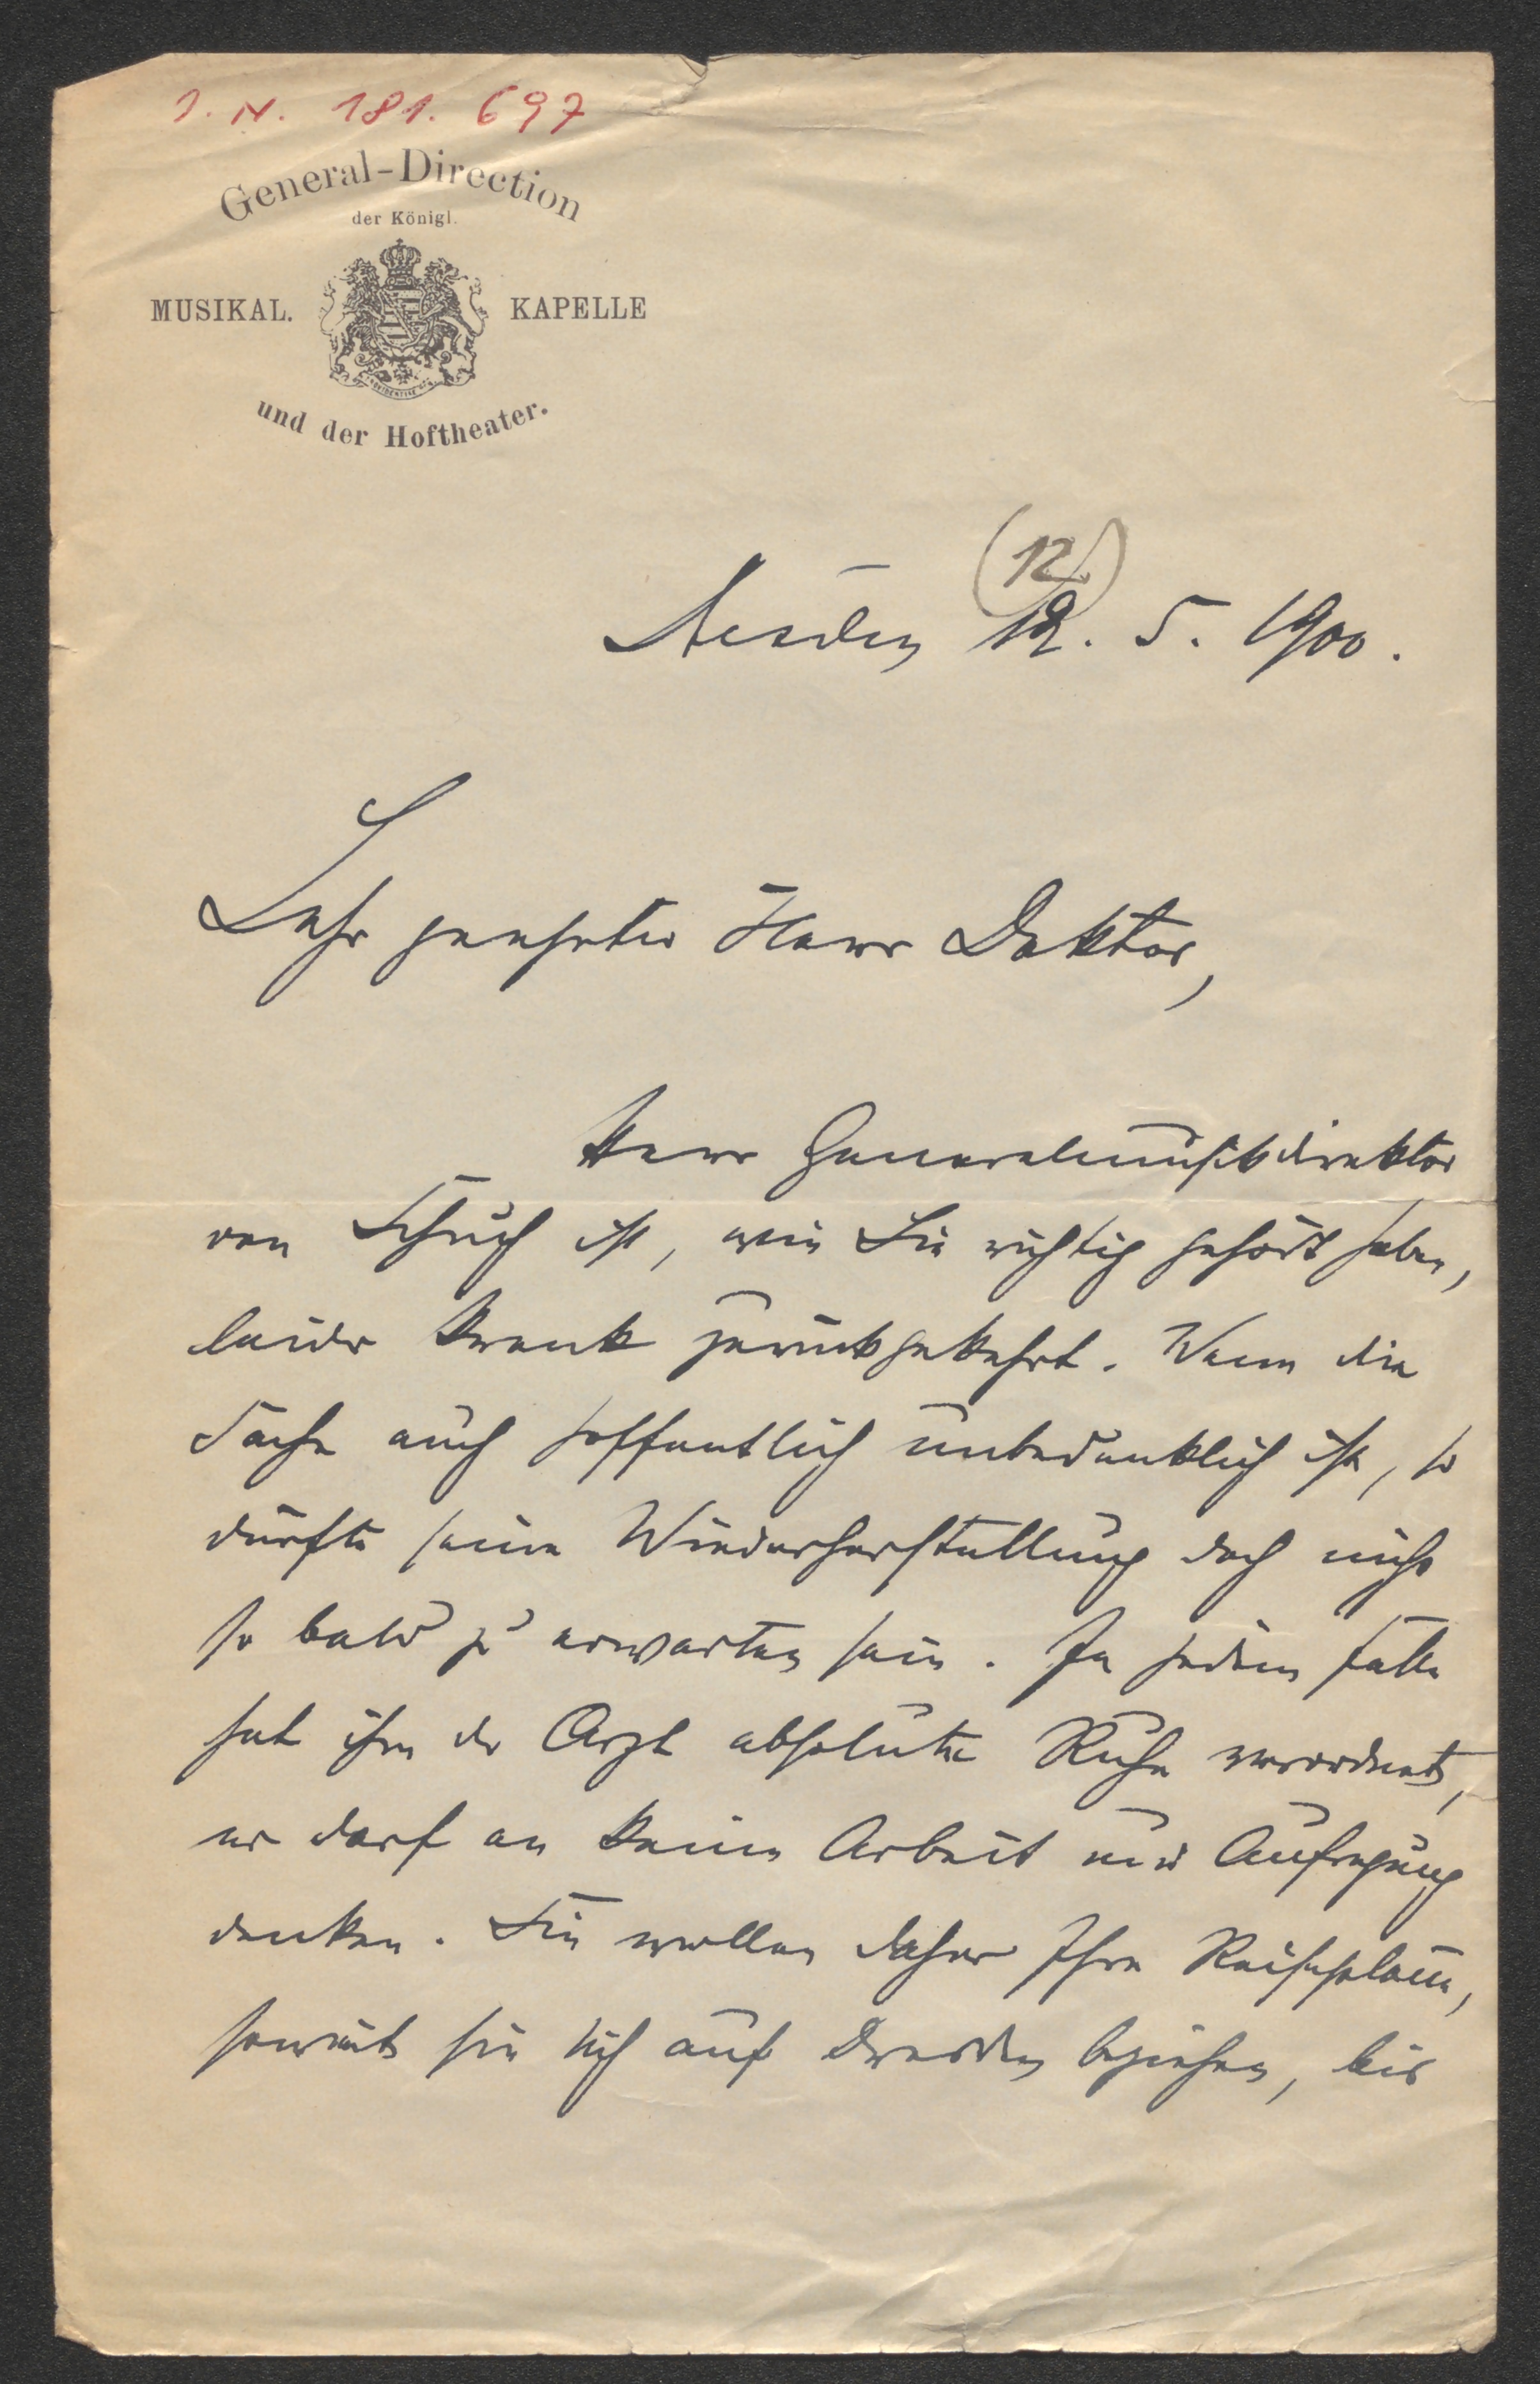 J. N. 181. 697
General-Direction
der Königl.
MUSIKAL. KAPELLE
und der Hoftheater.
(12.)
Dresden 12. 5. 1900.
Sehr geehrter Herr Doktor,
Herr Generalmusikdirektor
von Schuch ist, wie Sie richtig gehört haben,
leider krank zurückgekehrt. Wenn die
Sache auch hoffentlich unbedenklich ist, so
dürfte seine Wiederherstellung doch nicht
so bald zu erwarten sein. In jedem Falle
hat ihm der Arzt absolute Ruhe verordnet,
er darf an keine Arbeit und Aufregung
denken. Sie wollen daher Ihre Reisepläne,
soweit sie sich auf Dresden beziehen, bis